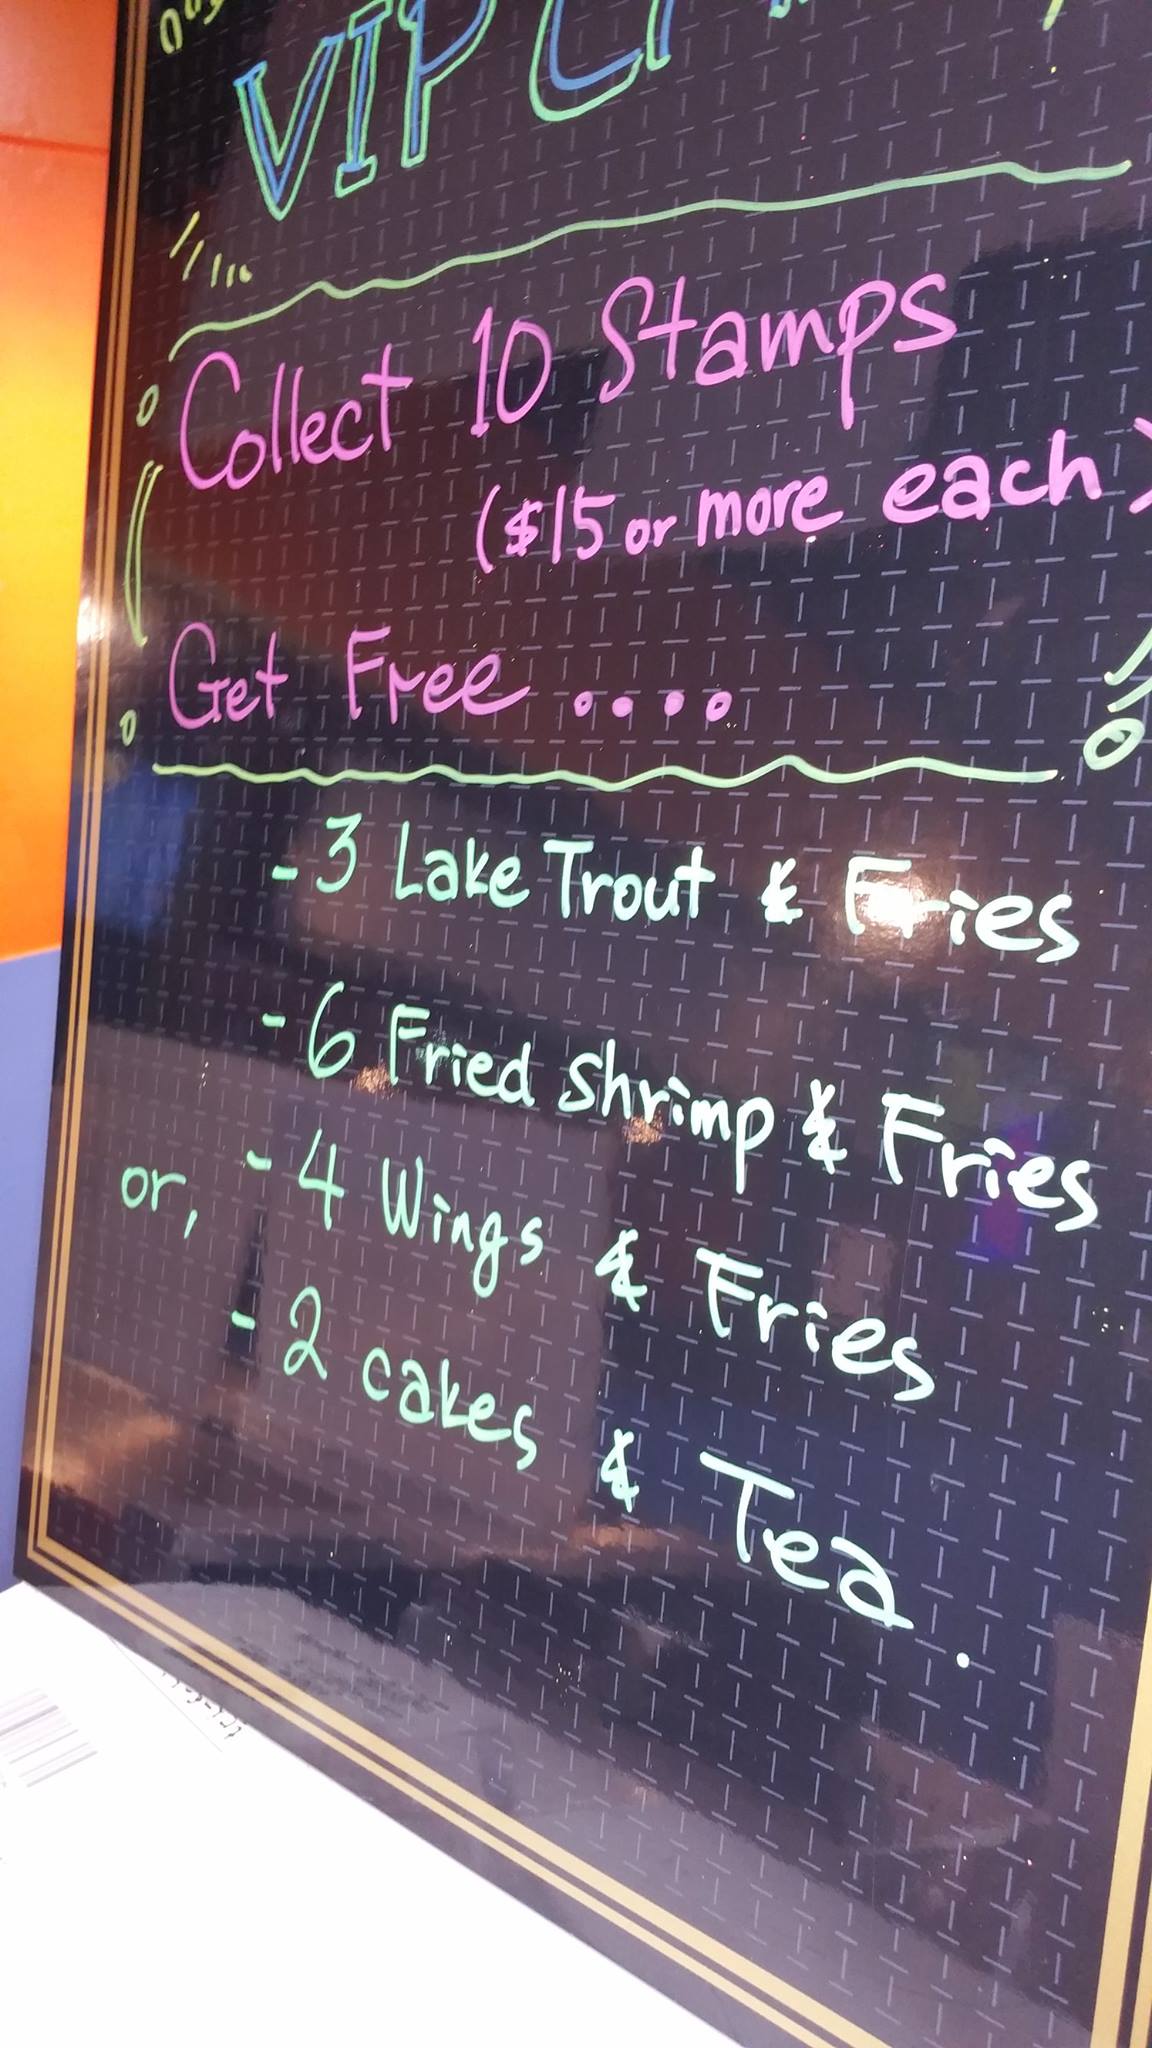 VIP
Collect 10 Stamps
($15 or more each)
Get Free ....
- 3 Lake Trout & Fries
- 6 Fried shrimp & Fries
or, - 4 Wings & Fries
- 2 cakes & Tea.